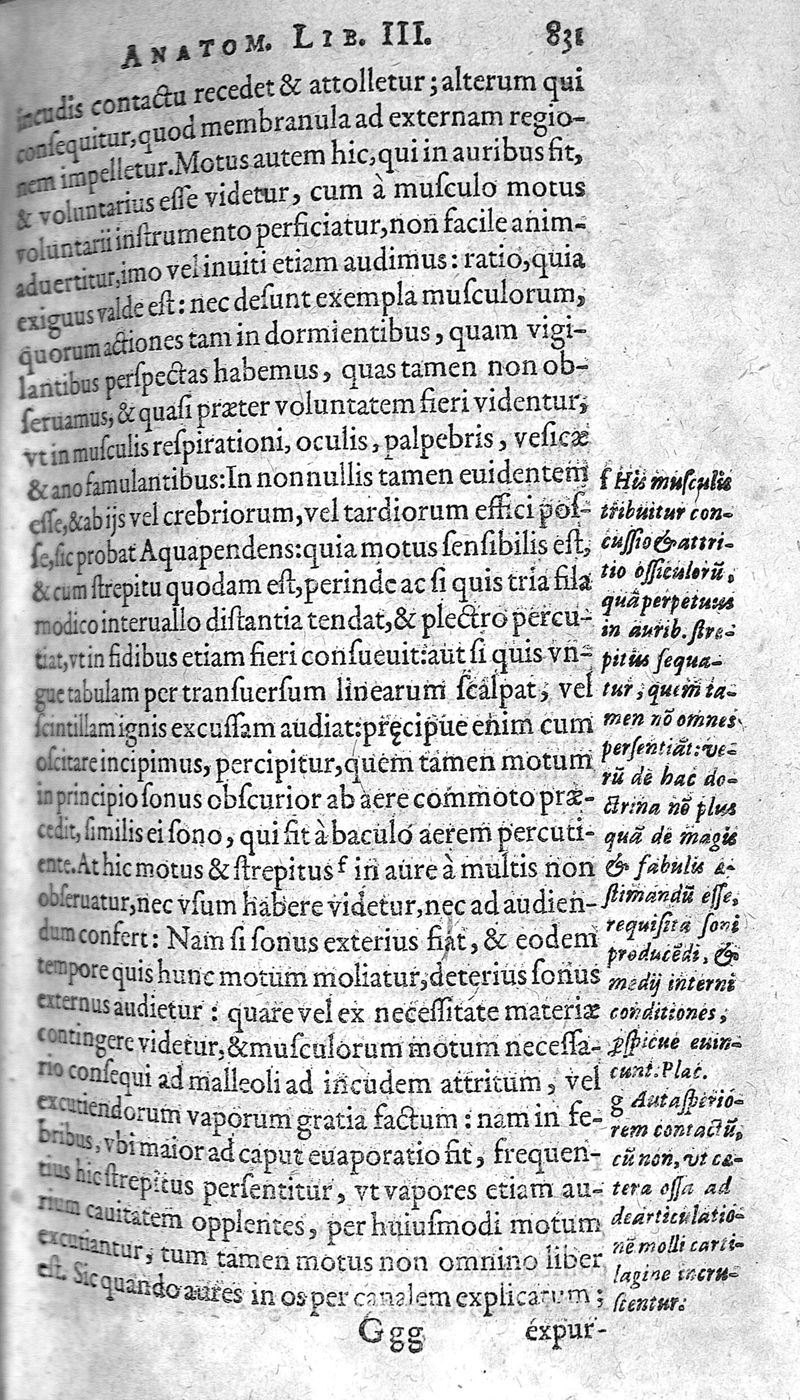 ANATOM. LIB. III. 831
incudis contactu recedet & attolletur; alterum qui
conſequitur, quod membranula ad externam regio-
nem impelletur. Motus autem hic, qui in auribus fit,
& voluntarius eſſe videtur, cum à muſculo motus
voluntarii inſtrumento perficiatur, non facile anim-
aduertitur, imo vel inuiti etiam audimus: ratio, quia
exiguus valde eſt: nec deſunt exempla muſculorum,
quorum actiones tam in dormientibus, quam vigi-
lantibus perſpectas habemus, quas tamen non ob-
ſeruamus, & quaſi præter voluntatem fieri videntur,
vt in muſculis reſpirationi, oculis, palpebris, veſicæ
& ano famulantibus: In nonnullis tamen euidentem
eſſe, & ab ijs vel crebriorum, vel tardiorum effici poſ-
ſe, ſic probat Aquapendens: quia motus ſenſibilis eſt,
& cum ſtrepitu quodam eſt, perinde ac ſi quis tria fila
modico interuallo diſtantia tendat, & plectro percu-
tiat, vt in fidibus etiam fieri conſueuit: aut ſi quis vn-
gue tabulam per tranſuerſum linearum ſcalpat, vel
ſcintillam ignis excuſſam audiat: pręcipue enim cum
oſcitare incipimus, percipitur, quem tamen motum
in principio ſonus obſcurior ab aere commoto præ-
cedit, ſimilis ei ſono, qui fit à baculo aerem percuti-
ente. At hic motus & ſtrepitus f in aure à multis non
obſeruatur, nec vſum habere videtur, nec ad audien-
dum confert: Nam ſi ſonus exterius fiat, & eodem
tempore quis hunc motum moliatur, deterius ſonus
externus audietur: quare vel ex neceſſitate materiæ
contingere videtur, & muſculorum motum neceſſa-
rio conſequi ad malleoli ad incudem attritum, vel
excutiendorum vaporum gratia factum: nam in fe-
bribus, vbi maior ad caput euaporatio fit, frequen-
tius hic ſtrepitus perſentitur, vt vapores etiam au-
rium cauitatem opplentes, per huiuſmodi motum
excutiantur, tum tamen motus non omnino liber
eſt. Sic quando aures in os per canalem explicatum;
Ggg expur-
f His muſculis
tribuitur con-
cuſſio & attri-
tio oſſiculorũ,
quã perpetuus
in aurib. ſtre-
pitus ſequa-
tur, quem ta-
men nõ omnes
perſentiãt: ve-
rũ de hac do-
ctrina nõ plus
quã de magis
& fabulis æ-
ſtimandũ eſſe,
requiſita ſoni
producẽdi, &
medij interni
conditiones,
ꝑſpicue euin-
cunt. Plat.
g Aut aſperio-
rem contactũ,
cũ non, vt cæ-
tera oſſa ad
dearticulatio-
nẽ molli carti-
lagine incru-
ſtentur.